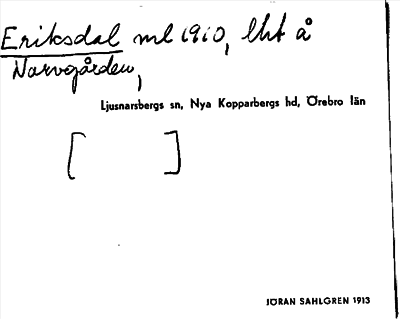 Eriksdal ml 1910, lht å
Norrgården,
Ljusnarsbergs sn, Nya Kopparbergs hd, Örebro län
[ ]
JÖRAN SAHLGREN 1913